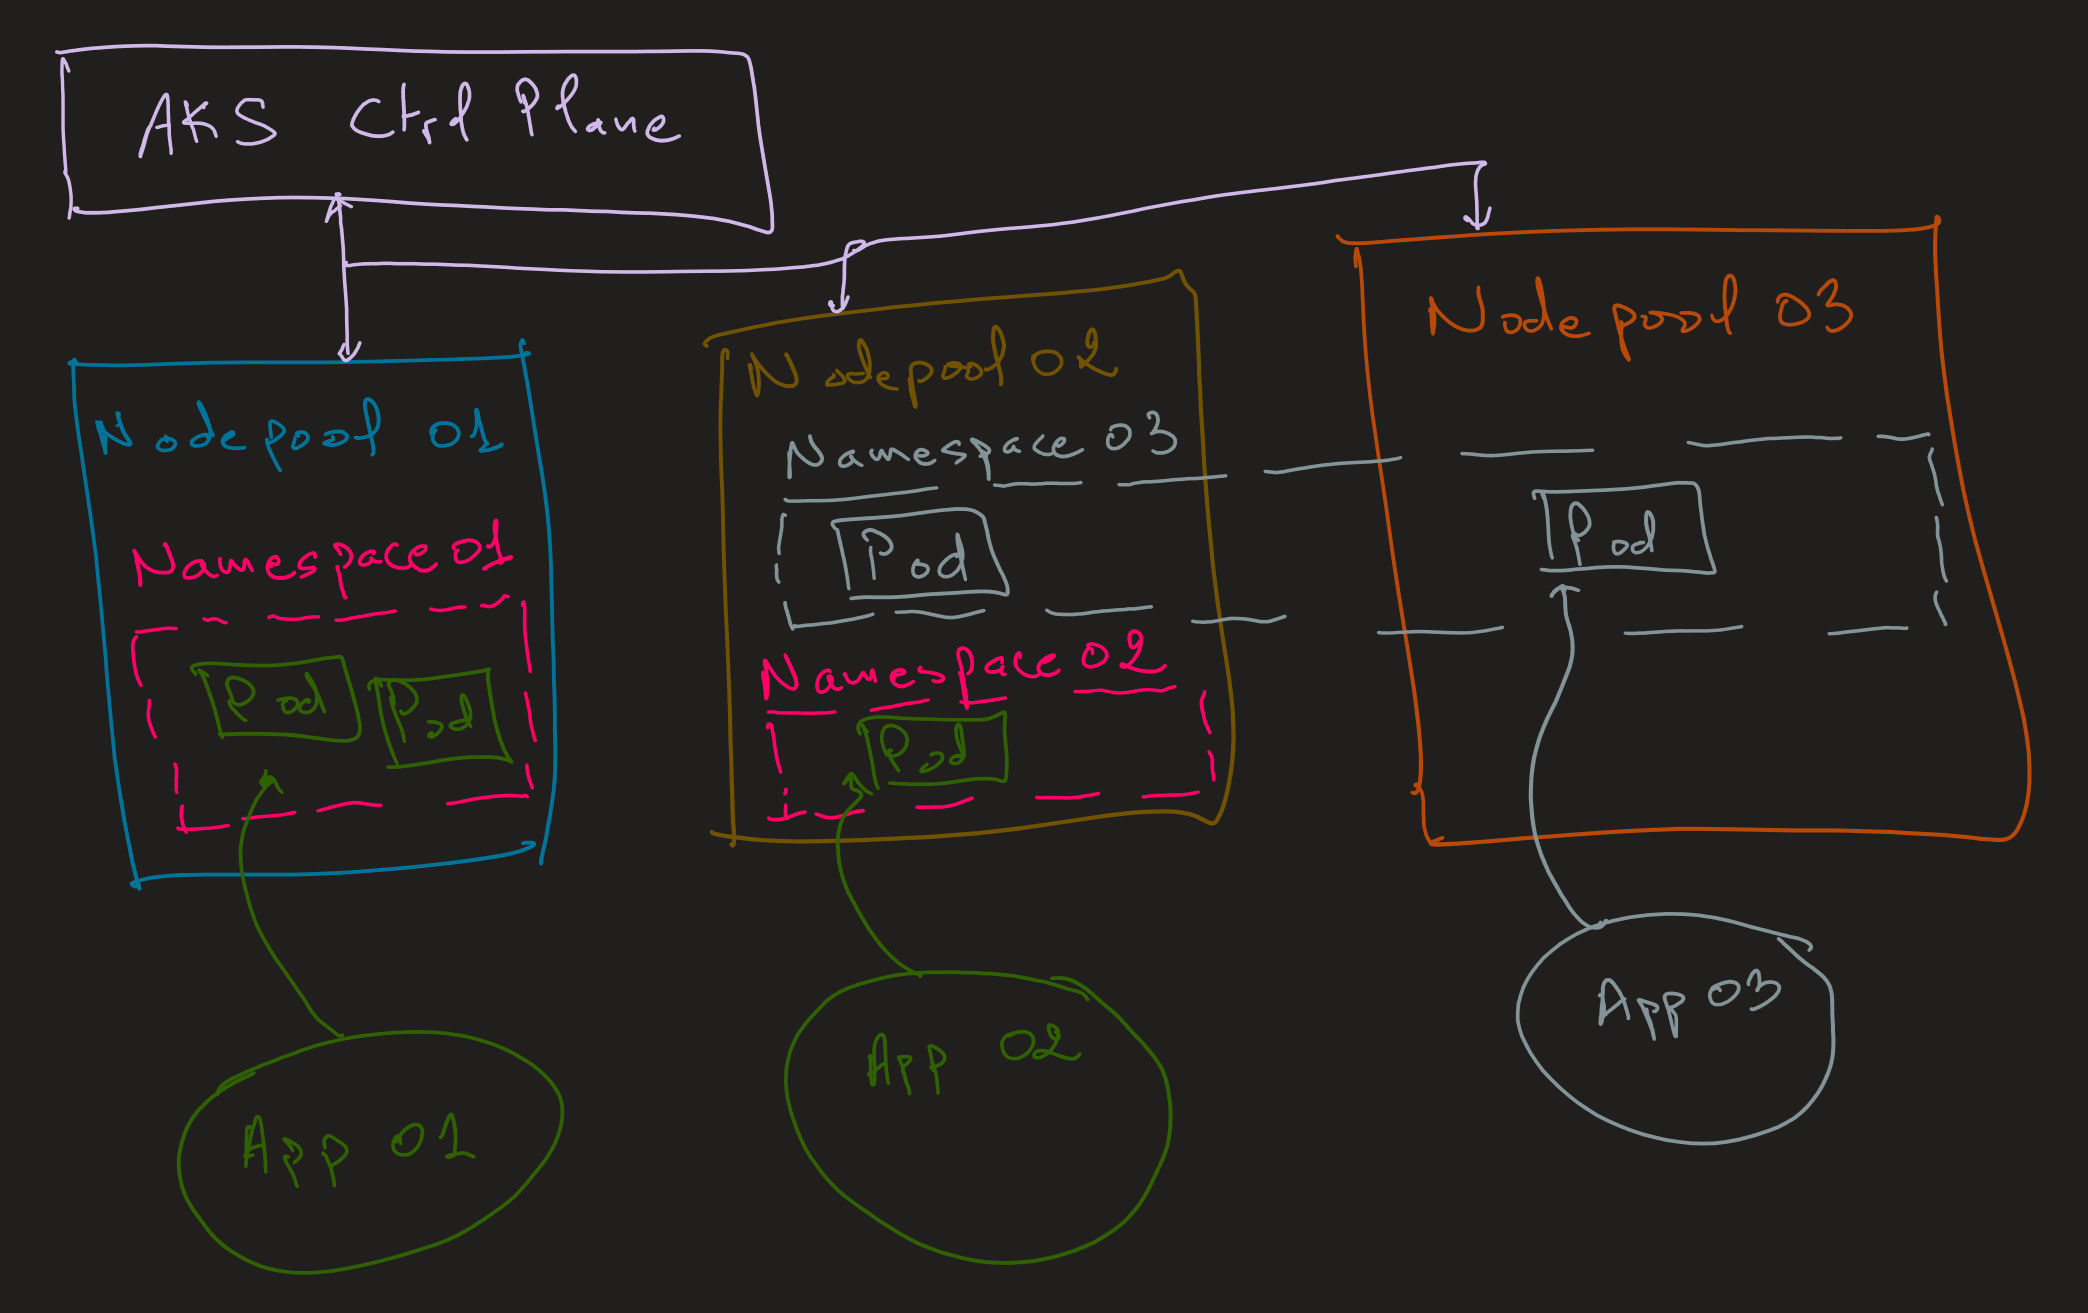 AKS Ctrl Plane
Nodepool 01
Namespace 01
Pod
Pod
App 01
Nodepool 02
Namespace 03
Pod
Namespace 02
Pod
App 02
Nodepool 03
Pod
App 03